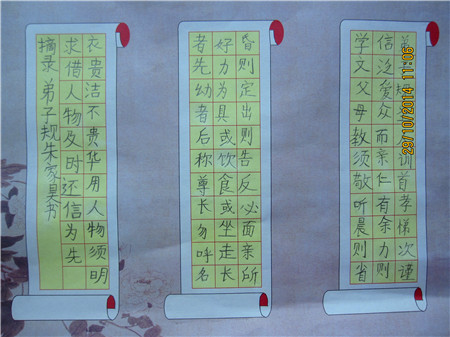 规训首孝悌次谨
信泛爱众而亲仁有余力则
学文父母教须敬听晨则省
昏则定出则告反必面亲所
好力为具或饮食或坐走长
者先幼者后称尊长勿呼名
衣贵洁不贵华用人物须明
求借人物及时还信为先
摘录弟子规朱家昊书
29/10/2014 11:06